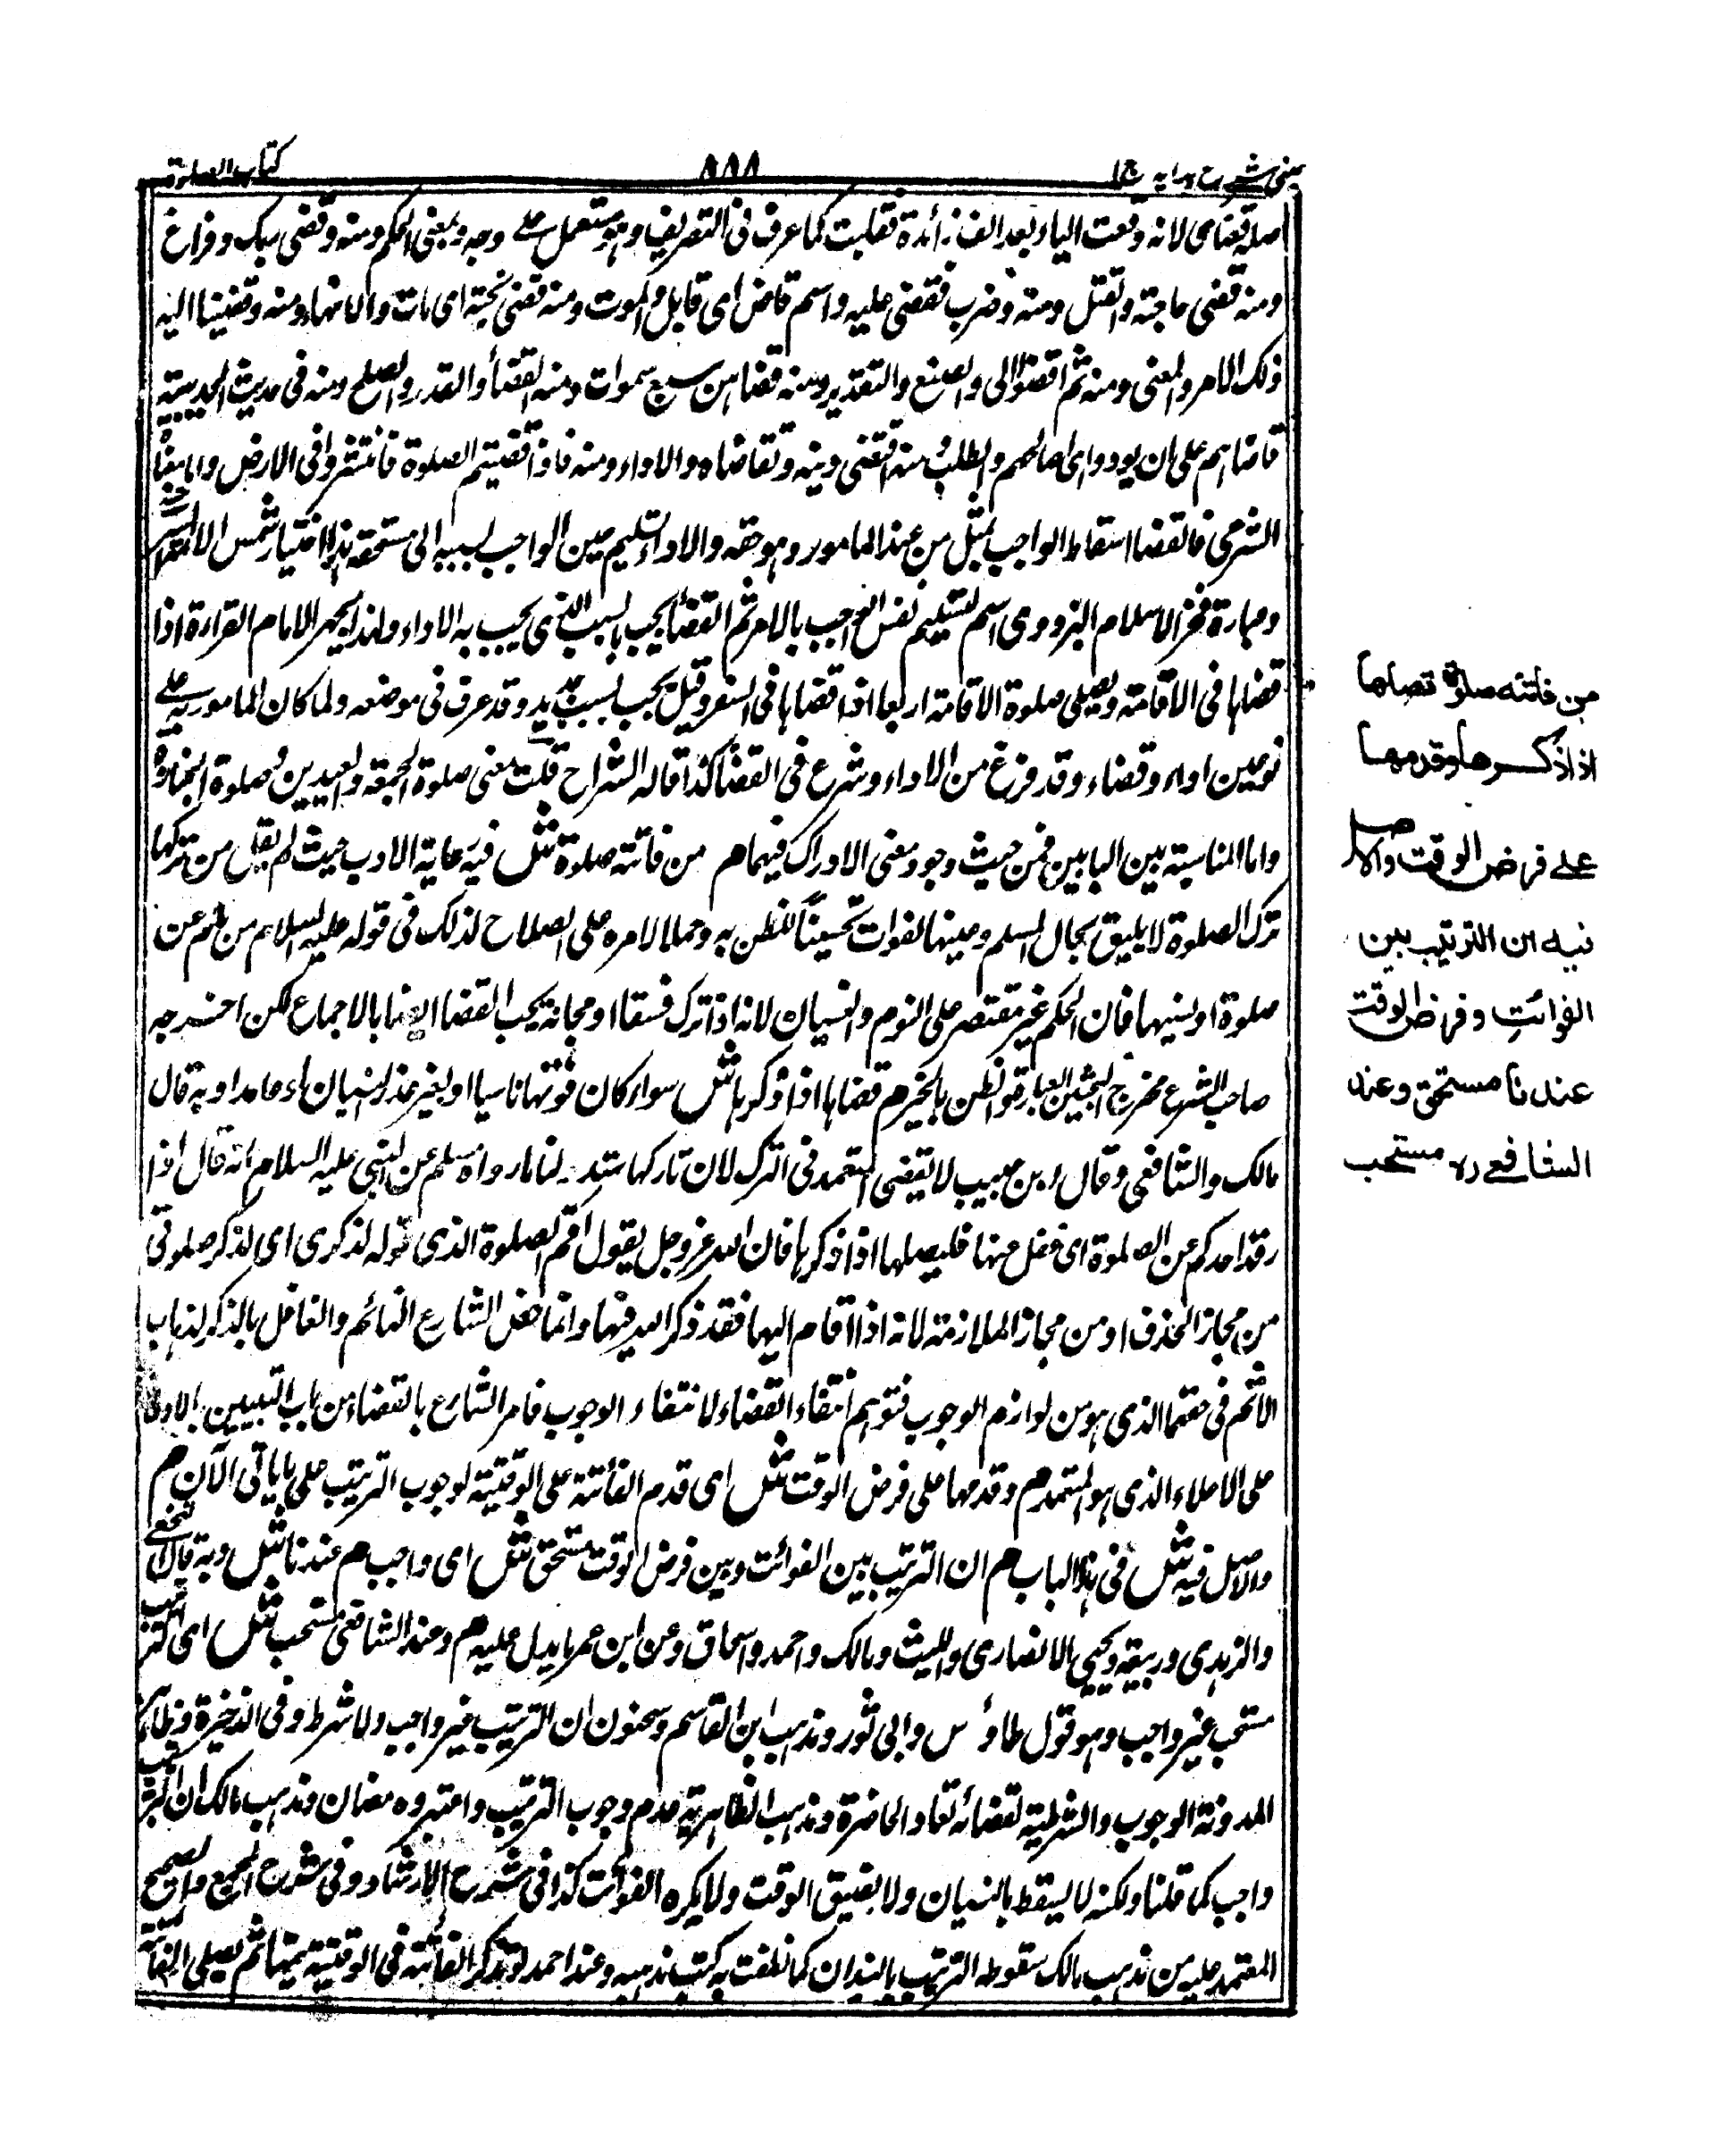 عینی شرح ہدایہ ج ا
٨٨٨
کتاب الصلوة
اصله قضاى لانه وقعت الياء بعد الف زائدة فقلبت كما عرف فى التصريف وهو مستعمل على وجه وبمعنى الحكم ومنه وقضى ربك وفراغ
ومنه قضى حاجته والقتل ومنه وضرب فقضى عليه واسم قاض اى قاتل والموت ومنه قضى نحبه اى مات والانهاء ومنه وقضينا اليه
ذلك الامر والمعنى ومنه ثم اقضوا الى والصنع والتقدير ومنه قضاهن سبع سموات ومنه القضأ والقدر والصلح ومنه فى حديث الحديبية
قاضاهم على ان يودوا اى صالحهم والطلب ومنه اقتضى دينه وتقاضاه والاداء ومنه فاذا قضيتم الصلوة فانتشروا فى الارض واما معناه
الشرعى فالقضا اسقاط الواجب بمثل من عند المامور وهو حقه والاداء تسليم عين الواجب بسببه الى مستحقه هذا اختيار شمس الائمة السرخسى
وعبارة فخر الاسلام البزدوى اسم لتسليم نفس الواجب بالامر ثم القضأ يجب بالسبب الذى يجب به الاداء ولهذا يجهر الامام القراءة اذا
قضاها فى الاقامة ويصلى صلوة الاقامة اربعا اذا قضاها فى السفر وقيل يجب بسبب جديد وقد عرف فى موضعه ولما كان المامور به على
نوعين اداء وقضاء وقد فرغ من الاداء وشرع فى القضأ كذا قاله الشراح قلت بقى صلوة الجمعة والعيدين وصلوة الجنازة
واما المناسبة بين البابين فمن حيث وجود معنى الادراك فيهما م من فاتته صلوة ش فيه رعاية الادب حيث لم يقل من تركها
ترك الصلوة لا يليق بحال المسلم وعينها لفوات تحسيناً للظن به وحملا لامره على الصلاح لذلك فى قوله عليه السلام من نام عن
صلوة او نسيها فان الحكم غير مقتصر على النوم والنسيان لانه اذا ترك فسقا او مجانة يجب القضا ايضا بالاجماع لكن اخرجه
صاحب الشرع مخرج الظن بالخير م قضاها اذا ذكرها ش سواء كان فوتها ناسيا او بغير عذر النسيان او عامدا وبه قال
مالك والشافعى وقال ابن حبيب لا يقضى المتعمد فى الترك لان تاركها مرتد لنا ما رواه مسلم عن النبى عليه السلام انه قال اذا
رقد احدكم عن الصلوة اى غفل عنها فليصلها اذا ذكرها فان الله عز وجل يقول اقم الصلوة الذى قوله لذكرى اى لذكر صلوتى
من مجاز الحذف او من مجاز الملازمة لانه اذا اقام اليها فقد ذكر الله فيها وانما خص الشارع النائم والغافل بالذكر لذهاب
الاثم فى حقهما الذى هو من لوازم الوجوب فتوهم انتفاء القضاء لانتفاء الوجوب فامر الشارع بالقضاء من باب التبيين بالادنى
على الاعلاء الذى هو المتعمد م وقدمها على فرض الوقت ش اى قدم الفائتة على الوقتية لوجوب الترتيب على ما ياتى الآن م
والاصل فيه ش فى هذا الباب م ان الترتيب بين الفوائت وبين فرض الوقت مستحق ش اى واجب م عندنا ش وبه قال النخعى
والزهرى وربيعة ويحيى الانصارى والليث ومالك واحمد واسحاق وعن ابن عمر ما يدل عليه م وعند الشافعى مستحب ش اى الترتيب
مستحب غير واجب وهو قول طاؤس وابى ثور ومذهب ابن القاسم وسحنون ان الترتيب غير واجب ولا شرط وفى الذخيرة وظاهر
المدونة الوجوب والشرطية لقضائه تعاد الحاضرة ومذهب الظاهرية عدم وجوب الترتيب واعتبروه رمضان ومذهب مالك ان الترتيب
واجب كما قلنا ولكنه لا يسقط بالنسيان ولا بضيق الوقت ولا بكثرة الفوائت كذا فى شرح الارشاد وفى شرح المجمع والصحيح
المعتمد عليه من مذهب مالك سقوط الترتيب بالنسيان كما نطقت به كتب مذهبه وعند احمد لو تذكر الفائتة فى الوقتية يتمها ثم يصلى الفائتة
من فاتته صلوة قضاها
اذا ذكرها وقدمها
على فرض الوقت والاصل
فيه ان الترتيب بين
الفوائت وفرض الوقت
عندنا مستحق وعند
الشافعے رہ مستحب